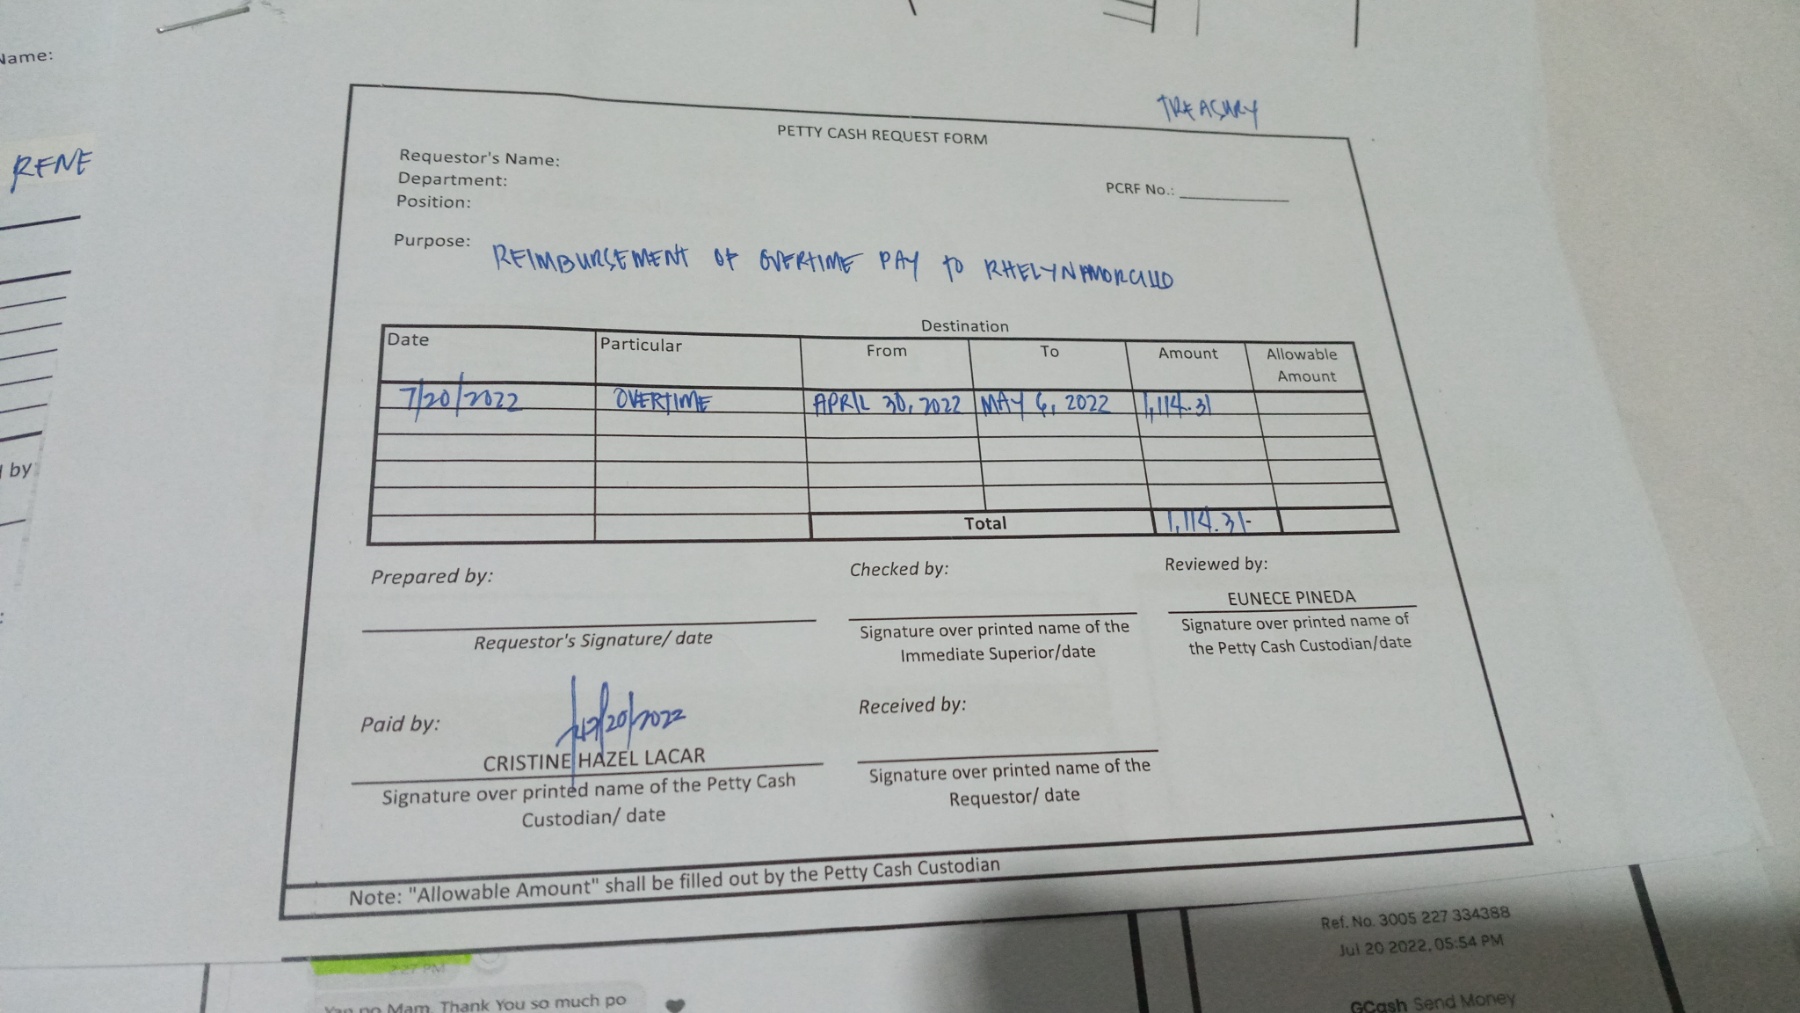 Name:
RENE
TREASURY
PETTY CASH REQUEST FORM
Requestor's Name:
Department:
PCRF No.:
Position:
Purpose: REIMBURSEMENT OF OVERTIME PAY TO RHELYN MORCILLO
Destination
Date Particular From To Amount Allowable Amount
7/20/2022 OVERTIME APRIL 30, 2022 MAY 6, 2022 1,114.31
Total 1,114.31-
by
Prepared by: Checked by: Reviewed by:
EUNECE PINEDA
Requestor's Signature/ date
Signature over printed name of the Immediate Superior/date
Signature over printed name of the Petty Cash Custodian/date
Paid by: Received by:
7/20/2022
CRISTINE HAZEL LACAR
Signature over printed name of the Petty Cash
Custodian/ date
Signature over printed name of the
Requestor/ date
Note: "Allowable Amount" shall be filled out by the Petty Cash Custodian
Ref. No. 3005 227 334388
Jul 20 2022, 05:54 PM
7:27 PM
Mam. Thank You so much po
GCash Send Money